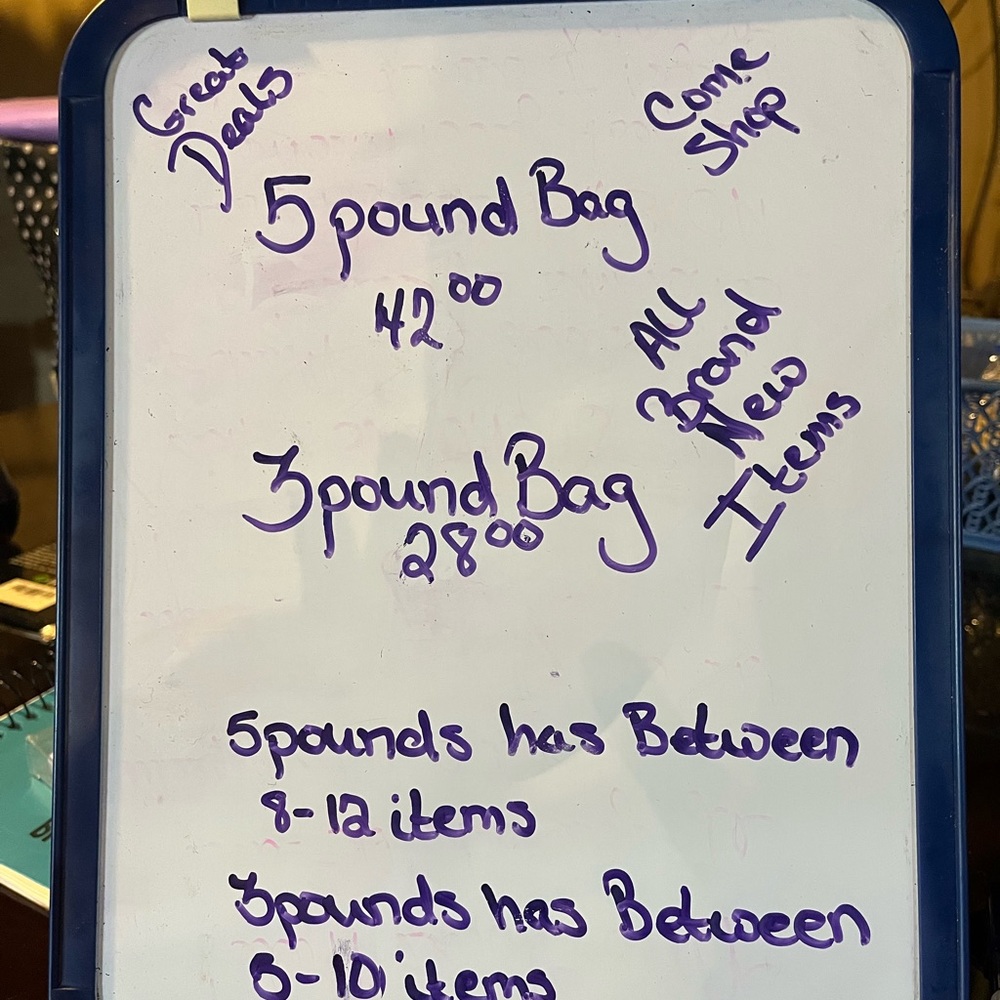 Great
Deals
Come
Shop
5 pound Bag
42⁰⁰
All
Brand
New
Items
3 pound Bag
28⁰⁰
5 pounds has Between
8-12 items
3 pounds has Between
-10 items